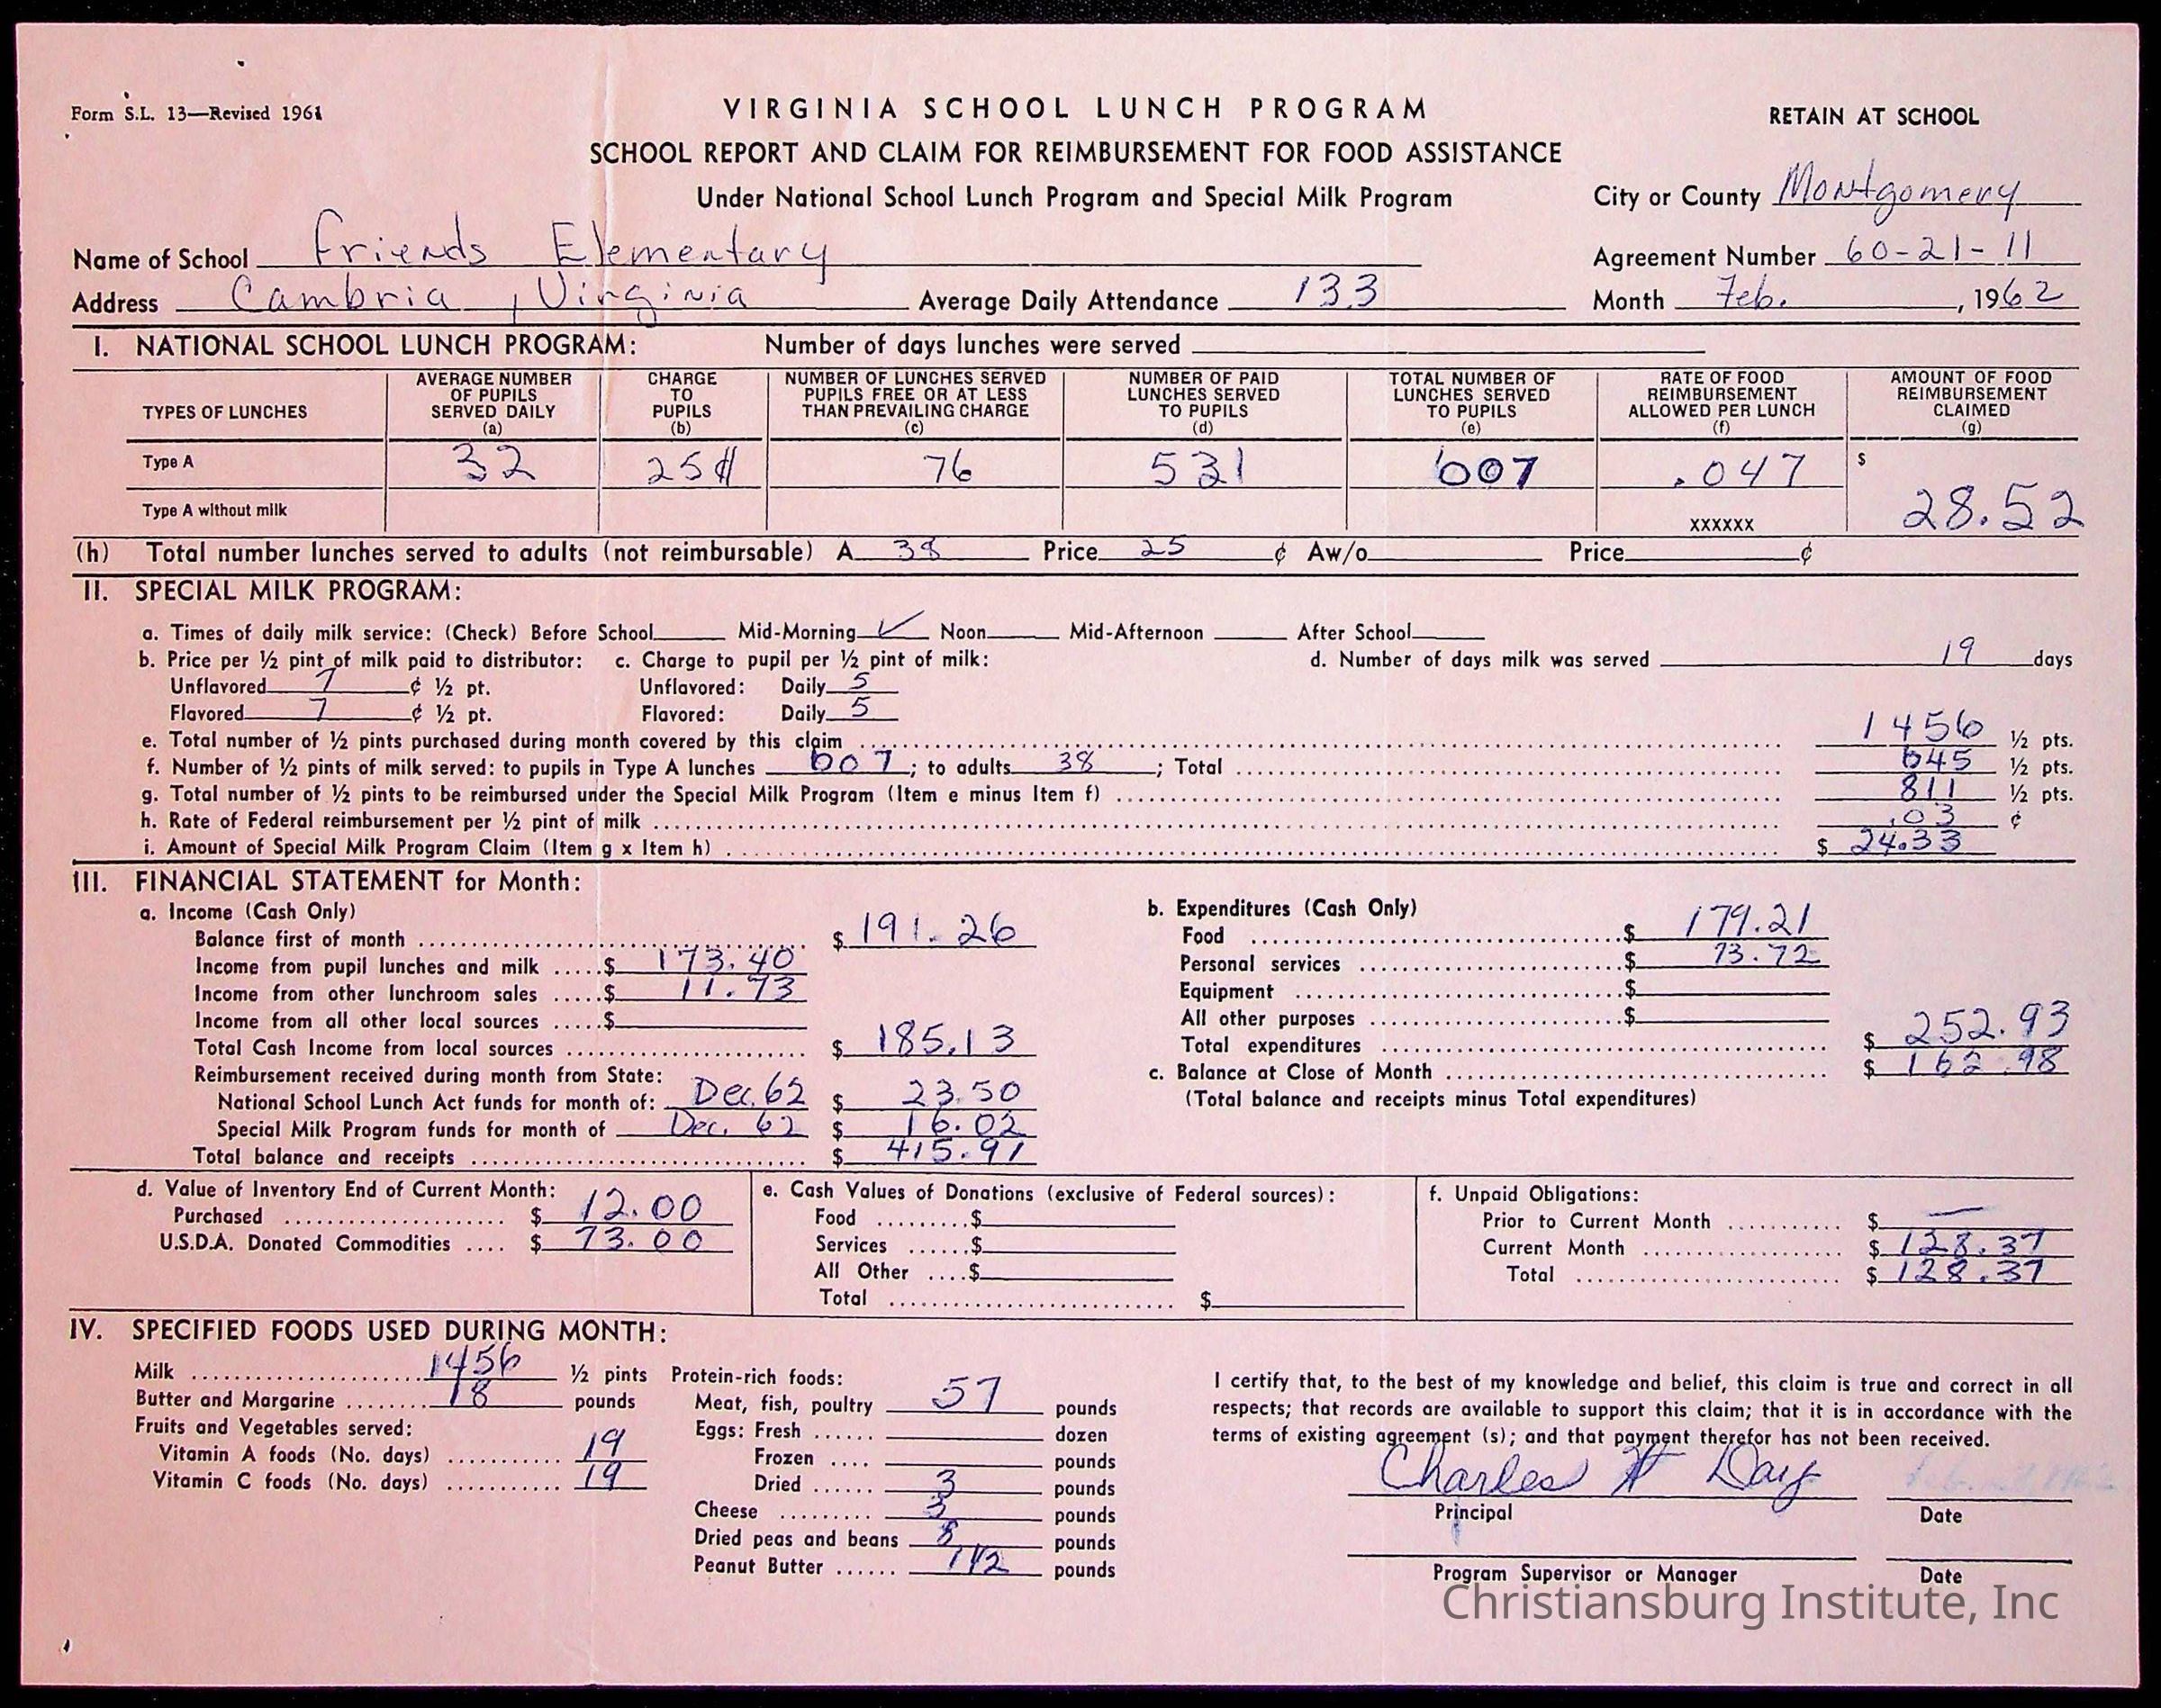 Form S.L. 13—Revised 1961
VIRGINIA SCHOOL LUNCH PROGRAM
RETAIN AT SCHOOL
SCHOOL REPORT AND CLAIM FOR REIMBURSEMENT FOR FOOD ASSISTANCE
Under National School Lunch Program and Special Milk Program
City or County Montgomery
Name of School Friends Elementary
Agreement Number 60-21-11
Address Cambria, Virginia Average Daily Attendance 133
Month Feb., 1962
I. NATIONAL SCHOOL LUNCH PROGRAM: Number of days lunches were served
TYPES OF LUNCHES
AVERAGE NUMBER OF PUPILS SERVED DAILY (a)
CHARGE TO PUPILS (b)
NUMBER OF LUNCHES SERVED PUPILS FREE OR AT LESS THAN PREVAILING CHARGE (c)
NUMBER OF PAID LUNCHES SERVED TO PUPILS (d)
TOTAL NUMBER OF LUNCHES SERVED TO PUPILS (e)
RATE OF FOOD REIMBURSEMENT ALLOWED PER LUNCH (f)
AMOUNT OF FOOD REIMBURSEMENT CLAIMED (g)
Type A 32 25¢ 76 531 607 .047 $ 28.52
Type A without milk XXXXXX
(h) Total number lunches served to adults (not reimbursable) A 38 Price 25 ¢ Aw/o Price ¢
II. SPECIAL MILK PROGRAM:
a. Times of daily milk service: (Check) Before School Mid-Morning ✓ Noon Mid-Afternoon After School
b. Price per ½ pint of milk paid to distributor: c. Charge to pupil per ½ pint of milk: d. Number of days milk was served 19 days
Unflavored 7 ¢ ½ pt. Unflavored: Daily 5
Flavored 7 ¢ ½ pt. Flavored: Daily 5
e. Total number of ½ pints purchased during month covered by this claim 1456 ½ pts.
f. Number of ½ pints of milk served: to pupils in Type A lunches 607; to adults 38; Total 645 ½ pts.
g. Total number of ½ pints to be reimbursed under the Special Milk Program (Item e minus Item f) 811 ½ pts.
h. Rate of Federal reimbursement per ½ pint of milk .03 ¢
i. Amount of Special Milk Program Claim (Item g x Item h) $ 24.33
III. FINANCIAL STATEMENT for Month:
a. Income (Cash Only)
Balance first of month $ 191.26
Income from pupil lunches and milk $ 173.40
Income from other lunchroom sales $ 11.73
Income from all other local sources $
Total Cash Income from local sources $ 185.13
Reimbursement received during month from State:
National School Lunch Act funds for month of: Dec. 62 $ 23.50
Special Milk Program funds for month of Dec. 62 $ 16.02
Total balance and receipts $ 415.91
b. Expenditures (Cash Only)
Food $ 179.21
Personal services $ 73.72
Equipment $
All other purposes $
Total expenditures $ 252.93
c. Balance at Close of Month $ 162.98
(Total balance and receipts minus Total expenditures)
d. Value of Inventory End of Current Month:
Purchased $ 12.00
U.S.D.A. Donated Commodities $ 73.00
e. Cash Values of Donations (exclusive of Federal sources):
Food $
Services $
All Other $
Total $
f. Unpaid Obligations:
Prior to Current Month $ —
Current Month $ 128.37
Total $ 128.37
IV. SPECIFIED FOODS USED DURING MONTH:
Milk 1456 ½ pints
Butter and Margarine 18 pounds
Fruits and Vegetables served:
Vitamin A foods (No. days) 19
Vitamin C foods (No. days) 19
Protein-rich foods:
Meat, fish, poultry 57 pounds
Eggs: Fresh dozen
Frozen pounds
Dried 3 pounds
Cheese 3 pounds
Dried peas and beans 8 pounds
Peanut Butter pounds
I certify that, to the best of my knowledge and belief, this claim is true and correct in all
respects; that records are available to support this claim; that it is in accordance with the
terms of existing agreement (s); and that payment therefor has not been received.
Charles H Day
Principal Date
Program Supervisor or Manager Date
Christiansburg Institute, Inc